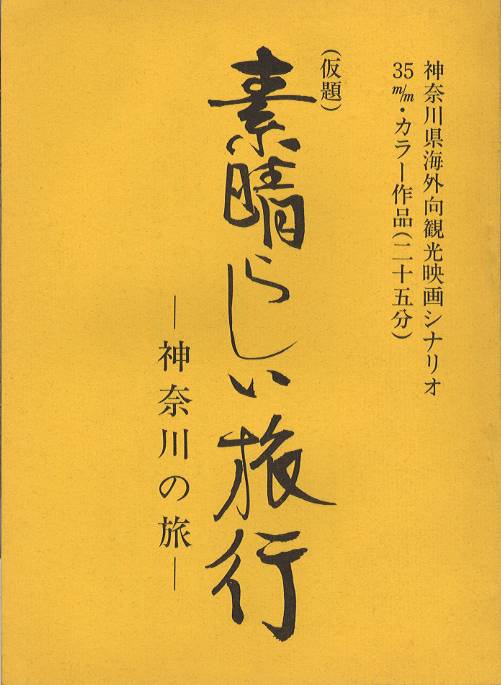 神奈川県海外向観光映画シナリオ
35m/m・カラー作品(二十五分)
(仮題)
素晴らしい旅行
―神奈川の旅―